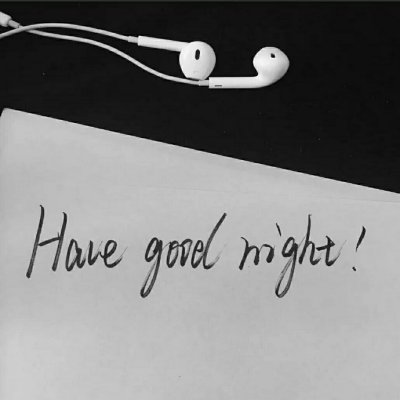 Have good night!